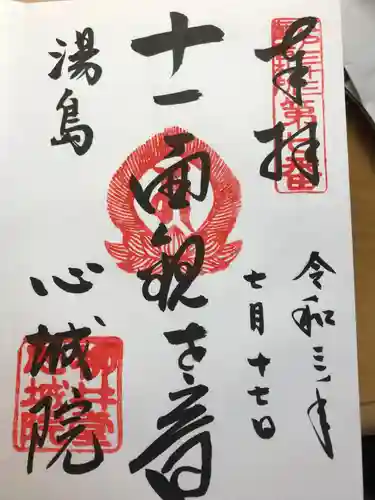 奉拝
令和三年
七月十七日
十一面観世音
湯島
心城院